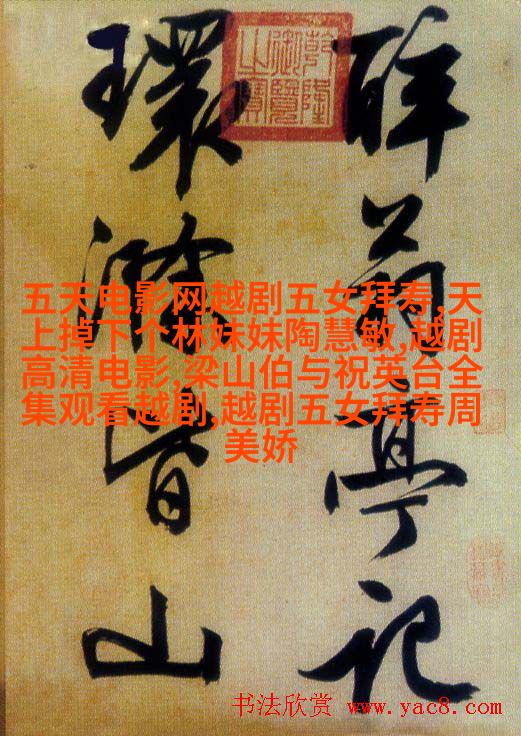 醉翁亭记
環滁皆山
乾隆御覽之寶
五天电影网越剧五女拜寿,天
上掉下个林妹妹陶慧敏,越剧
高清电影,梁山伯与祝英台全
集观看越剧,越剧五女拜寿周
美娇
书法欣赏 www.yac8.com